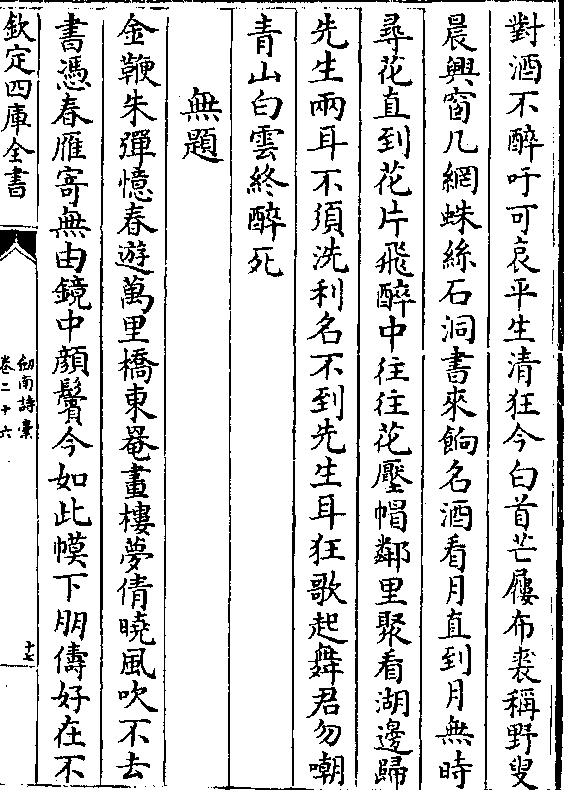 對酒不醉吁可哀平生清狂今白首芒屨布裘稱野叟
晨興窗几網蛛絲石洞書來餉名酒看月直到月無時
尋花直到花片飛醉中往往花壓帽鄰里聚看湖邊歸
先生兩耳不須洗利名不到先生耳狂歌起舞君勿嘲
青山白雲終醉死
無題
金鞭朱彈憶春遊萬里橋東罨畫樓夢倩曉風吹不去
書憑春雁寄無由鏡中顔鬢今如此幙下朋儔好在不
欽定四庫全書
劒南詩稾
卷二十六
十七